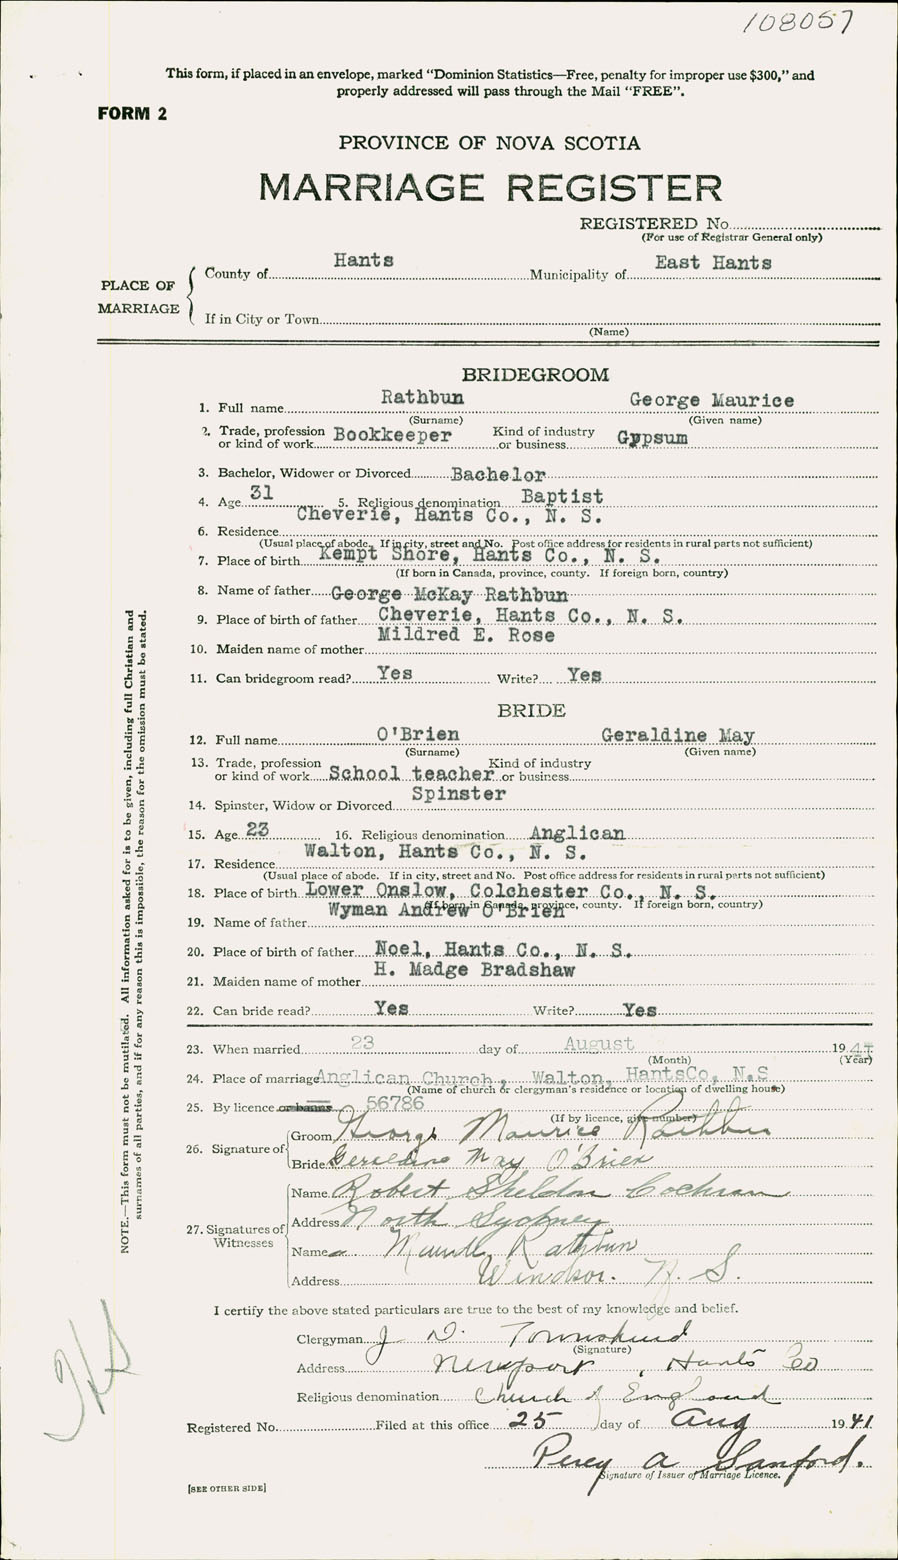 108057
This form, if placed in an envelope, marked “Dominion Statistics—Free, penalty for improper use $300,” and
properly addressed will pass through the Mail “FREE”.
FORM 2
PROVINCE OF NOVA SCOTIA
MARRIAGE REGISTER
REGISTERED No.
(For use of Registrar General only)
PLACE OF MARRIAGE
County of Hants Municipality of East Hants
If in City or Town
(Name)
BRIDEGROOM
1. Full name Rathbun George Maurice
(Surname) (Given name)
2. Trade, profession or kind of work Bookkeeper Kind of industry or business Gypsum
3. Bachelor, Widower or Divorced Bachelor
4. Age 31 5. Religious denomination Baptist
6. Residence Cheverie, Hants Co., N. S.
(Usual place of abode. If in city, street and No. Post office address for residents in rural parts not sufficient)
7. Place of birth Kempt Shore, Hants Co., N. S.
(If born in Canada, province, county. If foreign born, country)
8. Name of father George McKay Rathbun
9. Place of birth of father Cheverie, Hants Co., N. S.
10. Maiden name of mother Mildred E. Rose
11. Can bridegroom read? Yes Write? Yes
BRIDE
12. Full name O'Brien Geraldine May
(Surname) (Given name)
13. Trade, profession or kind of work School teacher Kind of industry or business
14. Spinster, Widow or Divorced Spinster
15. Age 23 16. Religious denomination Anglican
17. Residence Walton, Hants Co., N. S.
(Usual place of abode. If in city, street and No. Post office address for residents in rural parts not sufficient)
18. Place of birth Lower Onslow, Colchester Co., N. S.
(If born in Canada, province, county. If foreign born, country)
19. Name of father Wyman Andrew O'Brien
20. Place of birth of father Noel, Hants Co., N. S.
21. Maiden name of mother H. Madge Bradshaw
22. Can bride read? Yes Write? Yes
23. When married 23 day of August 1941
(Month) (Year)
24. Place of marriage Anglican Church, Walton, HantsCo, N.S
(Name of church or clergyman's residence or location of dwelling house)
25. By licence or banns 56786
(If by licence, give number)
26. Signature of
Groom George Maurice Rathbun
Bride Geraldine May O'Brien
27. Signatures of Witnesses
Name Robert Sheldon Cochran
Address North Sydney
Name Maude Rathbun
Address Windsor. N. S.
I certify the above stated particulars are true to the best of my knowledge and belief.
Clergyman J D. Townshend
(Signature)
Address Newport, Hants Co
Religious denomination Church of England
Registered No. Filed at this office 25 day of Aug 1941
Percy A Sanford.
Signature of Issuer of Marriage Licence.
[SEE OTHER SIDE]
NOTE.—This form must not be mutilated. All information asked for is to be given, including full Christian and
surnames of all parties, and if for any reason this is impossible, the reason for the omission must be stated.